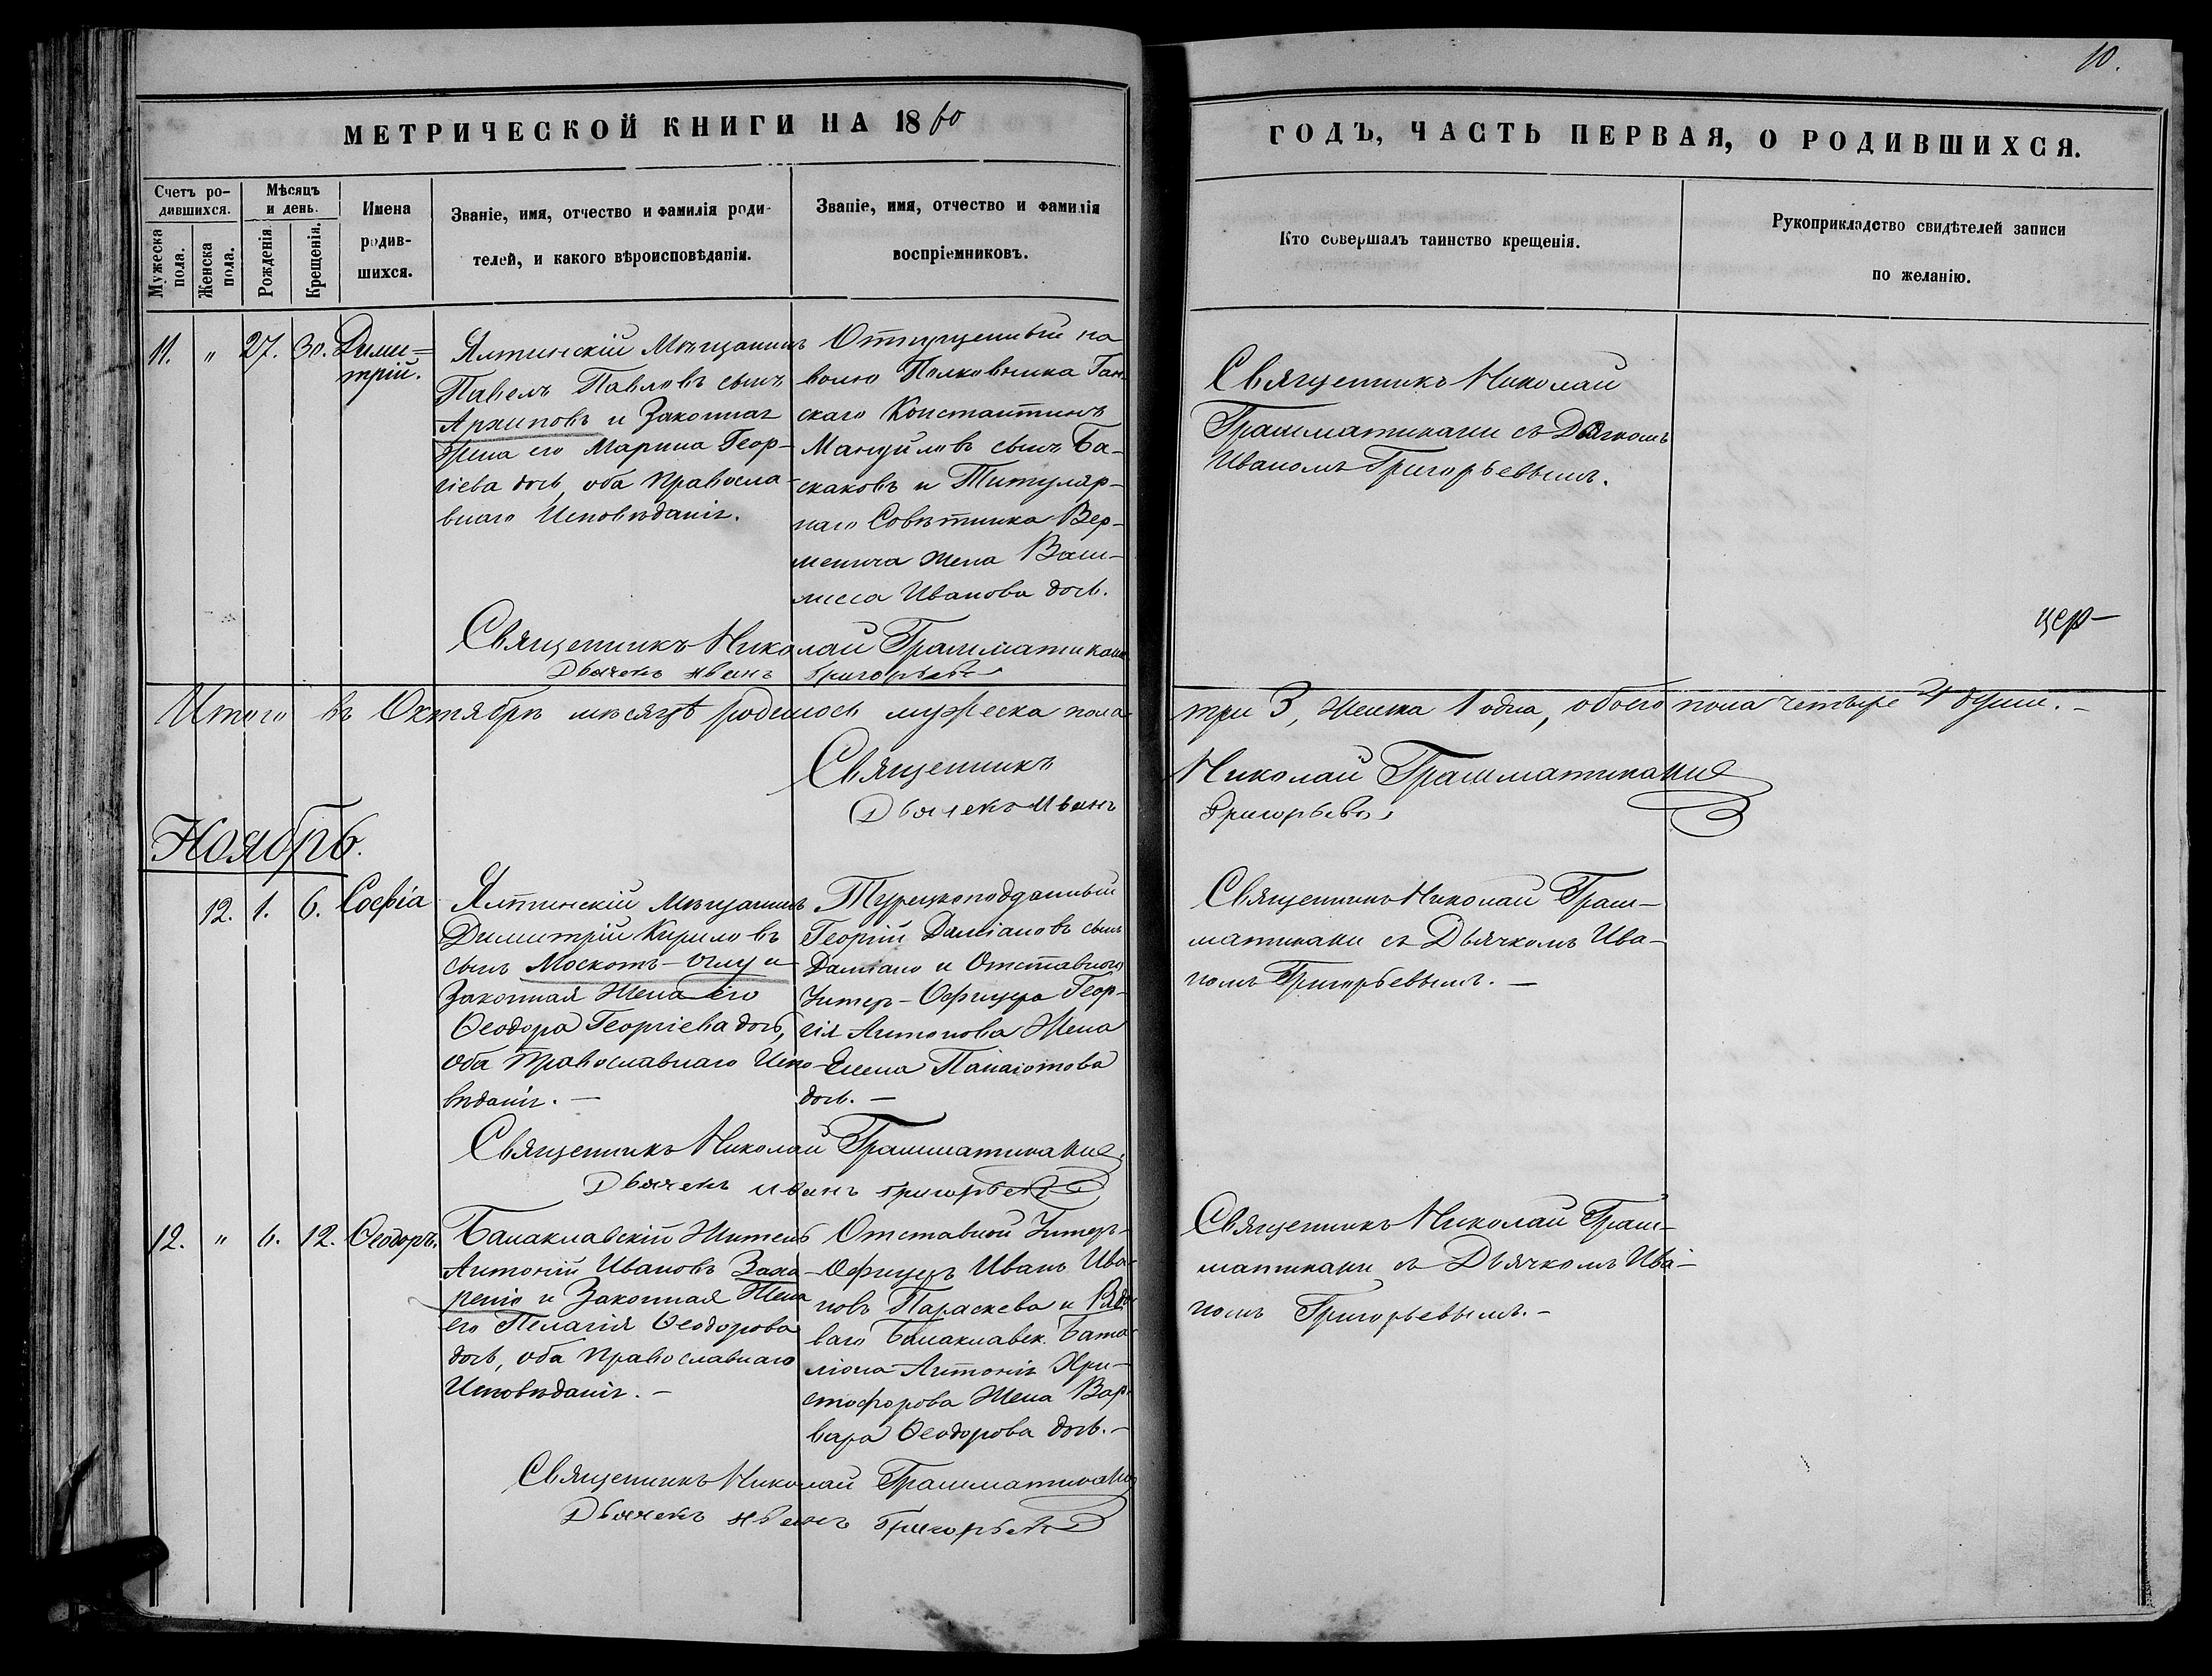 10.
МЕТРИЧЕСКОЙ КНИГИ НА 1860
ГОДЪ, ЧАСТЬ ПЕРВАЯ, О РОДИВШИХСЯ.
Счетъ ро-
дившихся.
Мужеска пола.
Женска пола.
Мѣсяцъ
и день.
Рожденія.
Крещенія.
Имена
родив-
шихся.
Званіе, имя, отчество и фамилія роди-
телей, и какого вѣроисповѣданія.
Званіе, имя, отчество и фамилія
воспріемниковъ.
Кто совершалъ таинство крещенія.
Рукоприкладство свидѣтелей записи
по желанію.
11. " 27. 30. Дими=
трій.
Ялтинскій Мѣщанинъ
Павелъ Павловъ сынъ
Архиповъ и Законная
Жена его Марина Геор-
гіева дочь, оба Правосла-
внаго Исповѣданія.
Отпущенный на
волю Полковника Ган-
скаго Константинъ
Мануйловъ сынъ Ба-
скаковъ и Титуляр-
наго Совѣтника Вер-
менича жена Васи-
лисса Иванова дочь.
Священникъ Николай
Грамматикати съ Дьячкомъ
Иваномъ Григорьевымъ.
цер-
Священникъ Николай Грамматикати
Дьячекъ Иванъ Григорьевъ
Итого въ Октябрѣ мѣсяцѣ родилось мужеска пола
три 3, женска 1 одна, обоего пола четыре 4 души. -
Священникъ
Николай Грамматикати
Дьячекъ Иванъ
Григорьевъ
Ноябрь.
12. 1. 6. Софія
Ялтинскій Мѣщанинъ
Димитрій Кириловъ
сынъ Москотъ-оглу и
Законная Жена его
Ѳеодора Георгіева дочь,
оба Православнаго Испо-
вѣданія. -
Турецкоподданный
Георгій Даміановъ сынъ
Даміано и Отставнаго
Унтеръ-Офицера Геор-
гія Антонова Жена
Елена Панаіотова
дочь. -
Священникъ Николай Грам-
матикати съ Дьячкомъ Ива-
номъ Григорьевымъ. -
Священникъ Николай Грамматикати
Дьячекъ Иванъ Григорьевъ
12. " 6. 12. Ѳеодоръ.
Балаклавскій Житель
Антоній Ивановъ Заха-
реніо и Законная Жена
его Пелагія Ѳеодорова
дочь, оба Православнаго
Исповѣданія. -
Отставной Унтеръ-
Офицеръ Иванъ Ива-
новъ Параскева и Рядо-
ваго Балаклавск. Бата-
ліона Антонія Хри-
стофорова Жена Вар-
вара Ѳеодорова дочь. -
Священникъ Николай Грам-
матикати съ Дьячкомъ Ива-
номъ Григорьевымъ. -
Священникъ Николай Грамматикати
Дьячекъ Иванъ Григорьевъ